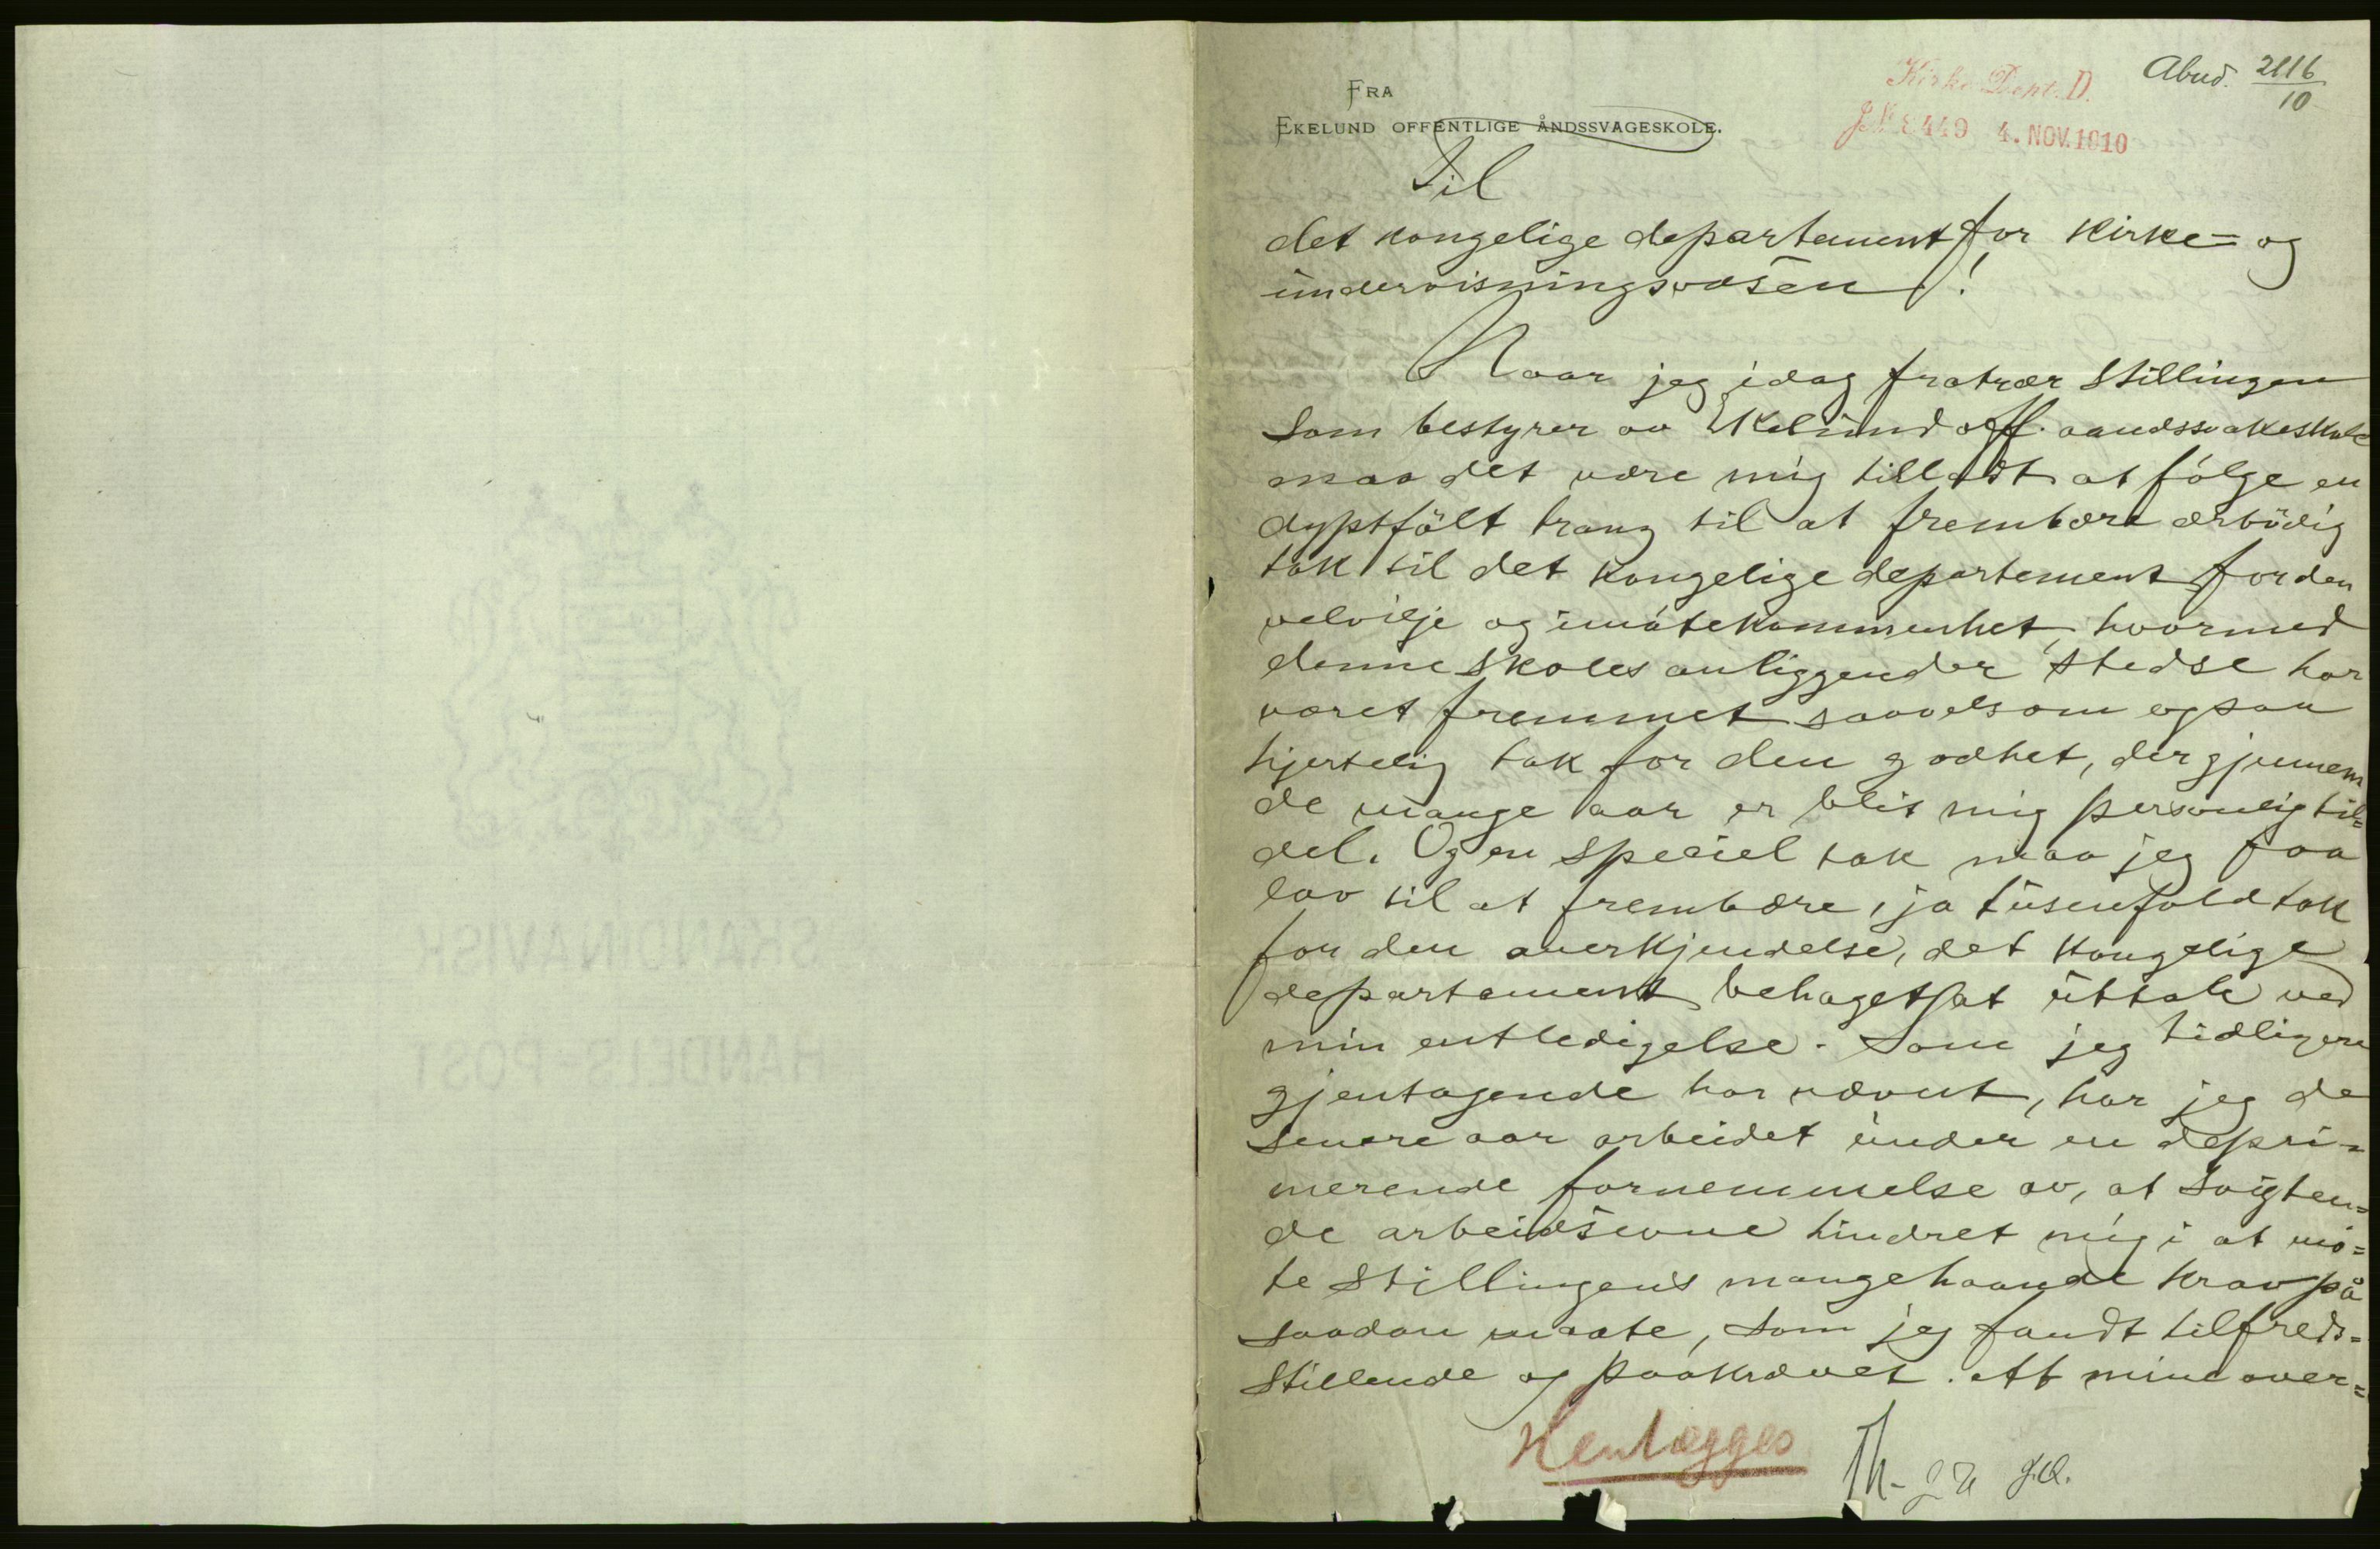 Abud. 2116
10
Kirke Dept. D.
FRA
EKELUND OFFENTLIGE ÅNDSSVAGESKOLE.
J.№ 3449 4. NOV. 1910
Til
det kongelige departement for kirke= og
undervisningsvæsen!
Naar jeg idag fratræer stillingen
som bestyrer av Ekelund off. aandssvakeskole
maa det være mig tilladt at følge en
dyptfølt trang til at frembære ærbødig
tak til det kongelige departement for den
velvilje og imøtekommenhet, hvormed
denne skoles anliggender stedse har
været fremmet saavelsom ogsaa
hjertelig tak for den godhet, der gjennem
de mange aar er blit mig personlig til=
del. Og en speciel tak maa jeg faa
lov til at frembære, ja tusenfold tak
for den anerkjendelse, det kongelige
departement behaget at uttale ved
min entledigelse. Som jeg tidligere
gjentagende har nævnt, har jeg de
senere aar arbeidet under en depri=
merende fornemmelse av, at svigten=
de arbeidsevne hindret mig i at mø=
te stillingens mangehaande krav på
saadan maate, som jeg fandt tilfreds=
stillende og paakrævet. At mine over=
Henlægges
Th-
SKANDINAVISK
HANDELS-POST